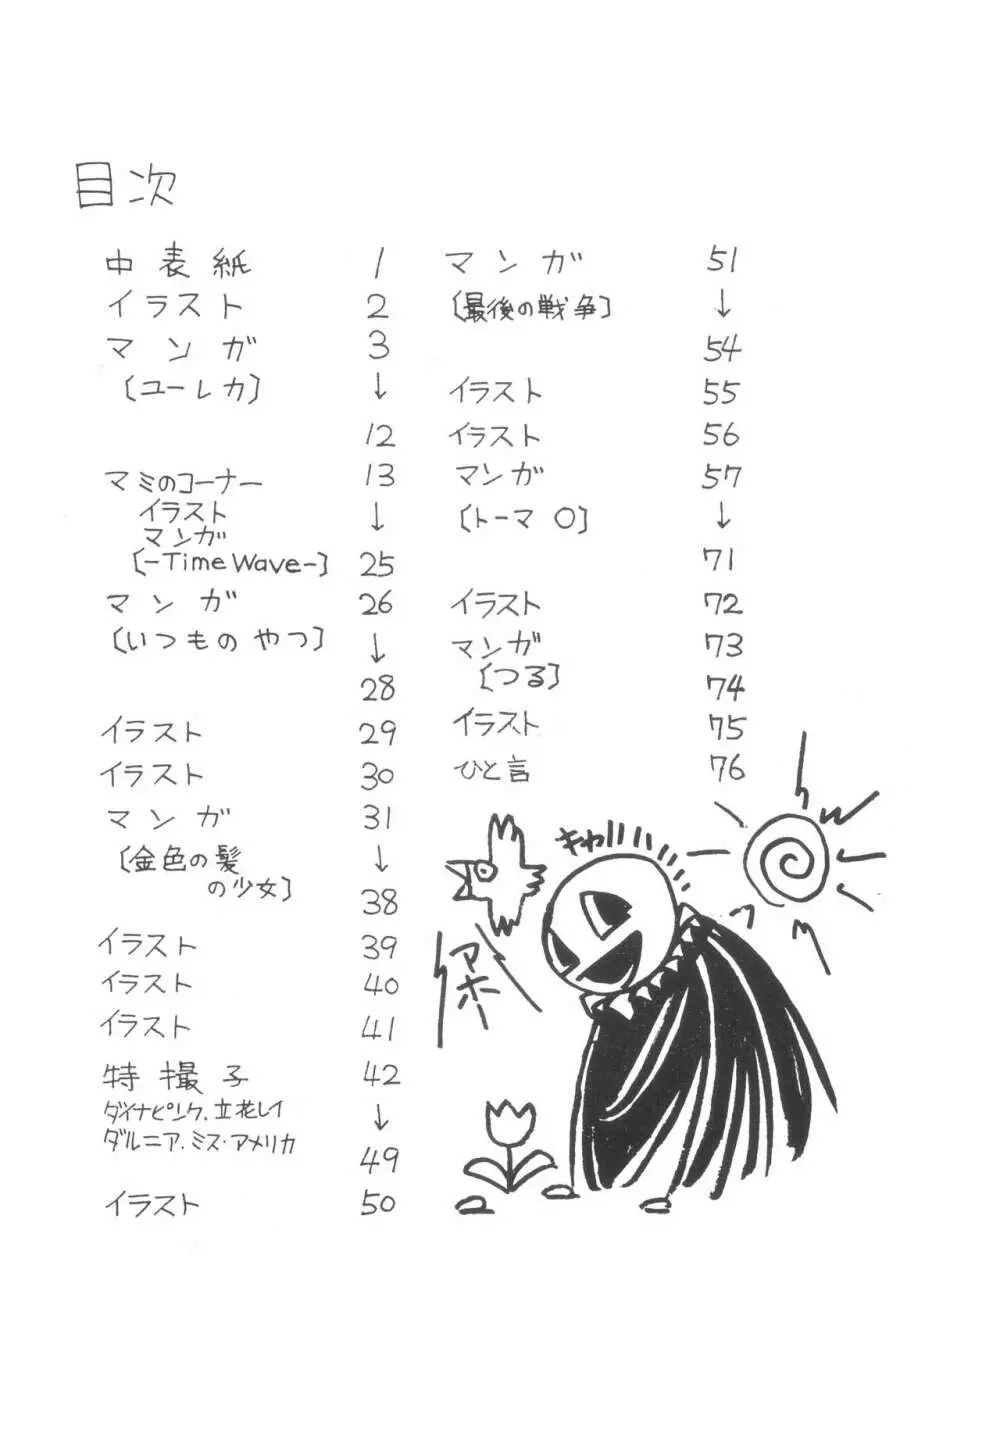 目次
中表紙 1
イラスト 2
マンガ 3
〔ユーレカ〕 ↓
12
マミのコーナー 13
イラスト ↓
マンガ
〔-Time Wave-〕 25
マンガ 26
〔いつものやつ〕 ↓
28
イラスト 29
イラスト 30
マンガ 31
〔金色の髪 ↓
の少女〕 38
イラスト 39
イラスト 40
イラスト 41
特撮子 42
ダイナピンク、立花レイ ↓
ダルニア、ミス・アメリカ 49
イラスト 50
マンガ 51
〔最後の戦争〕 ↓
54
イラスト 55
イラスト 56
マンガ 57
〔トーマ 〇〕 ↓
71
イラスト 72
マンガ 73
〔つる〕 74
イラスト 75
ひと言 76
キャハハハ
アホー